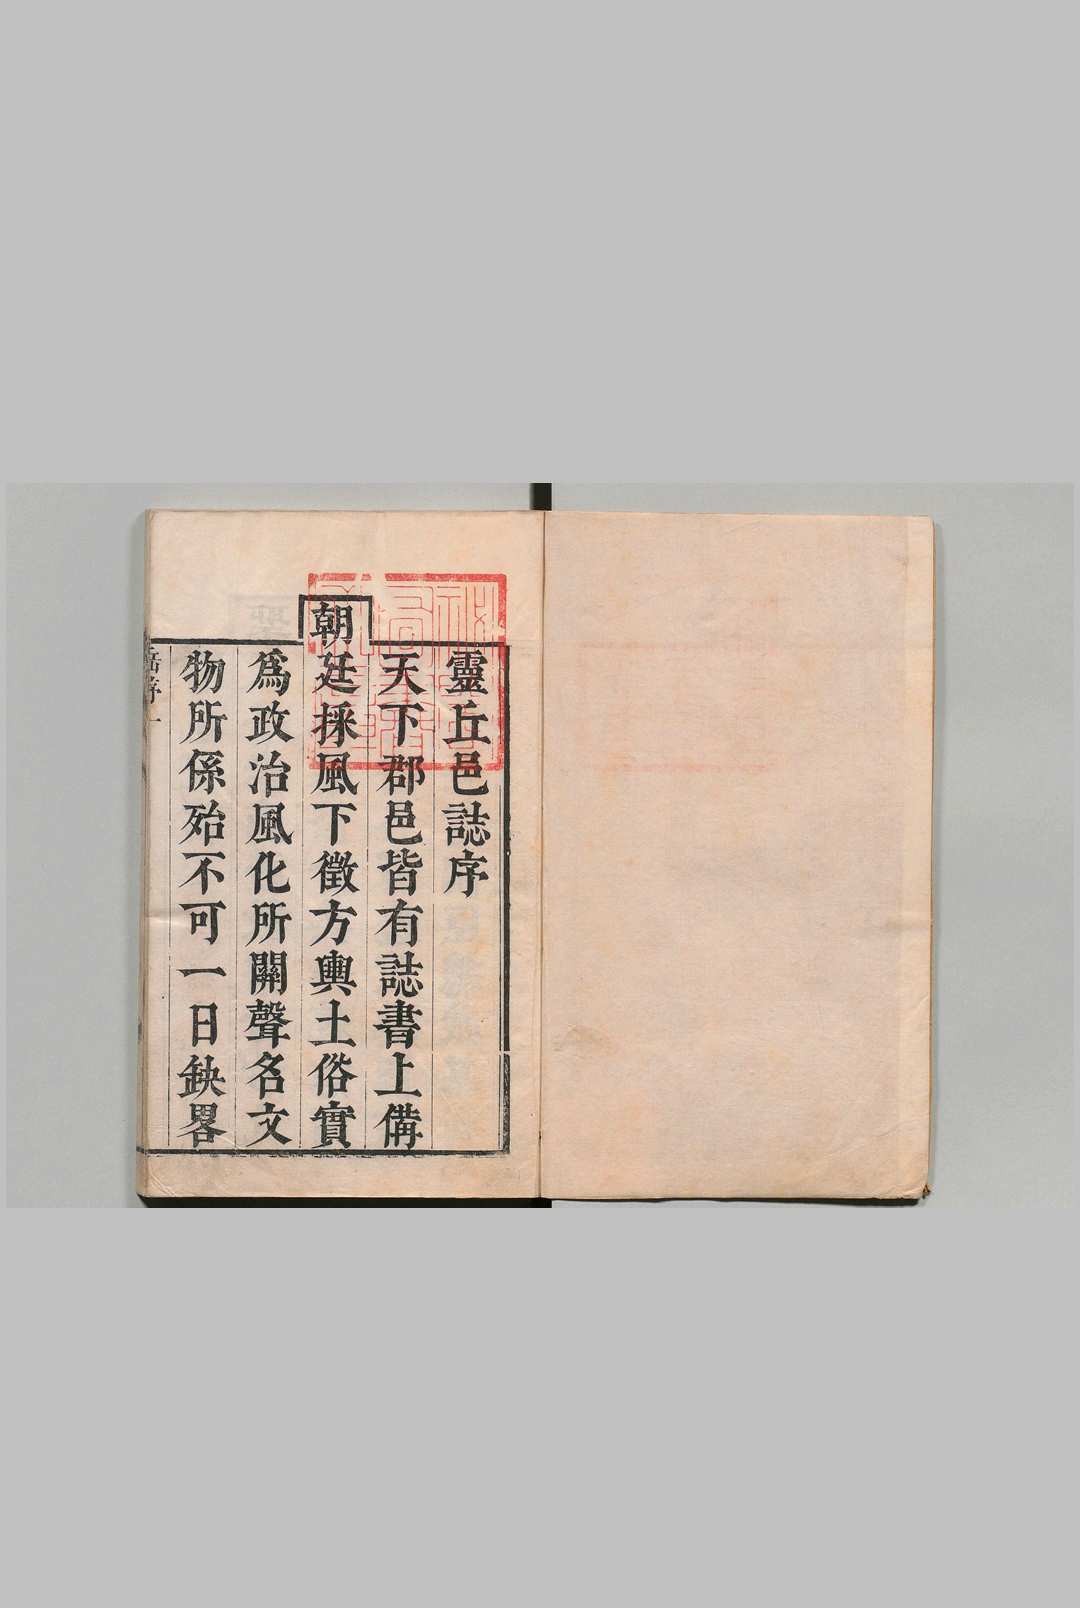 靈丘邑誌序
天下郡邑皆有誌書上備
朝廷採風下徵方輿土俗實
爲政治風化所關聲名文
物所係殆不可一日缺畧